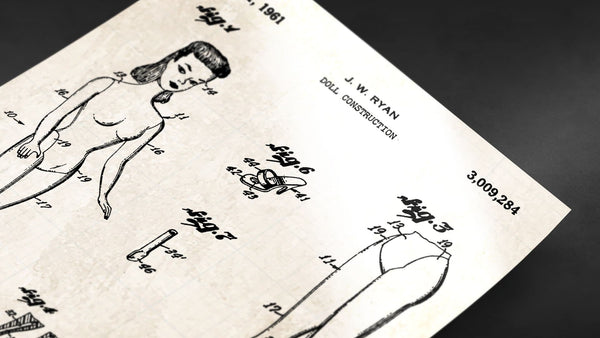 , 1961
J. W. RYAN
DOLL CONSTRUCTION
3,009,284
Fig.1
13
14
16
11
10
19
16
19
17
Fig.6
44
42
43
41
Fig.7
24'
46
Fig.3
13
19
19
11
17
Fig.4